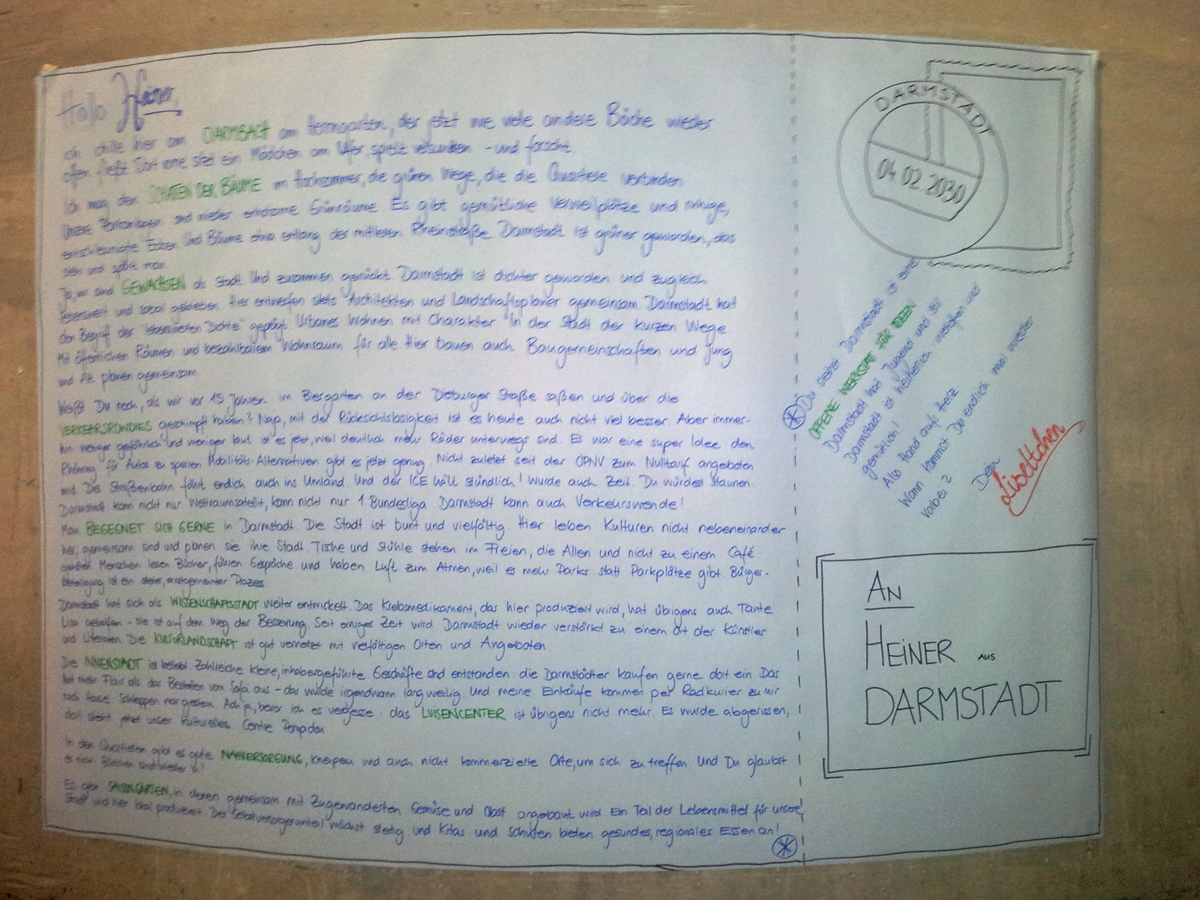 Hallo Heiner,
ich chille hier am DARMBACH am Herrngarten, der jetzt wie viele andere Bäche wieder
offen fließt. Dort vorne sitzt ein Mädchen am Ufer, spielt versunken - und forscht.
Ich mag den SCHATTEN DER BÄUME im Hochsommer, die grünen Wege, die die Quartiere verbinden.
Unsere Parkanlagen sind wieder erholsame Grünräume. Es gibt gemütliche Verweilplätze und ruhige,
entschleunigte Ecken. Und Bäume etwa entlang der mittleren Rheinstraße. Darmstadt ist grüner geworden, das
sieht und spürt man.
Ja, wir sind GEWACHSEN als Stadt. Und zusammen gerückt. Darmstadt ist dichter geworden und zugleich
lebenswert und sozial geblieben. Hier entwerfen stets Architekten und Landschaftsplaner gemeinsam. Darmstadt hat
den Begriff der "lebenswerten Dichte" geprägt. Urbanes Wohnen mit Charakter. In der Stadt der kurzen Wege
Mit öffentlichen Räumen und bezahlbarem Wohnraum für alle. Hier bauen auch Baugemeinschaften und Jung
und Alt planen gemeinsam.
Weißt Du noch, als wir vor 15 Jahren im Biergarten an der Dieburger Straße saßen und über die
VERKEHRSCHAOS geschimpft haben? Naja, mit der Rücksichtslosigkeit ist es heute auch nicht viel besser. Aber immer-
hin weniger gefährlich und weniger laut ist es jetzt, weil deutlich mehr Räder unterwegs sind. Es war eine super Idee den
für Autos zu sperren. Mobilitäts-Alternativen gibt es jetzt genug. Nicht zuletzt seit der ÖPNV zum Nulltarif angeboten
wird. Die Straßenbahn fährt endlich auch ins Umland. Und der ICE hält stündlich! Wurde auch Zeit. Du würdest staunen.
Darmstadt kann nicht nur Weltraumsatellit, kann nicht nur 1. Bundesliga. Darmstadt kann auch Verkehrswende!
Man BEGEGNET SICH GERNE in Darmstadt. Die Stadt ist bunt und vielfältig. Hier leben Kulturen nicht nebeneinander
her; gemeinsam sind und planen sie ihre Stadt. Tische und Stühle stehen im Freien, die Allen und nicht zu einem Café
gehören. Menschen lesen Bücher, führen Gespräche und haben Luft zum Atmen, weil es mehr Parks statt Parkplätze gibt. Bürger-
beteiligung ist ein steter, ernstgemeinter Prozess.
Darmstadt hat sich als WISSENSCHAFTSSTADT weiter entwickelt. Das Krebsmedikament, das hier produziert wird, hat übrigens auch Tante
Lisa geholfen - sie ist auf dem Weg der Besserung. Seit einiger Zeit wird Darmstadt wieder verstärkt zu einem Ort der Künstler
und Literaten. Die KULTURLANDSCHAFT ist gut vernetzt mit vielfältigen Orten und Angeboten.
Die INNENSTADT ist belebt. Zahlreiche kleine, inhabergeführte Geschäfte sind entstanden: die Darmstädter kaufen gerne dort ein. Das
hat mehr Flair als das Bestellen vom Sofa aus - das wurde irgendwann langweilig. Und meine Einkäufe kommen per Radkurier zu mir
nach Hause. Schleppen war gestern. Ach ja, bevor ich es vergesse: das LUISENCENTER ist übrigens nicht mehr. Es wurde abgerissen,
dort steht jetzt unser kulturelles Centre Pompidou.
In den Quartieren gibt es gute NAHVERSORGUNG, Kneipen und auch nicht kommerzielle Orte, um sich zu treffen. Und Du glaubst
es nicht: Büdchen sind wieder in!
Es gibt SAISONGÄRTEN, in denen gemeinsam mit Zugewanderten Gemüse und Obst angebaut wird. Ein Teil der Lebensmittel für unsere
Stadt wird hier lokal produziert. Der Selbstversorgeranteil wächst stetig und Kitas und Schulen bieten gesundes, regionales Essen an!
DARMSTADT
04 02 2030
Du siehst Darmstadt ist eine
OFFENE WERKSTATT FÜR IDEEN
Darmstadt hat Jugend und Stil
Darmstadt ist herrlich weltoffen und
gemütlich!
Also Hand aufs Herz
Wann kommst Du endlich mal wieder
vorbei?
Dein
Lisettchen
AN
HEINER AUS
DARMSTADT